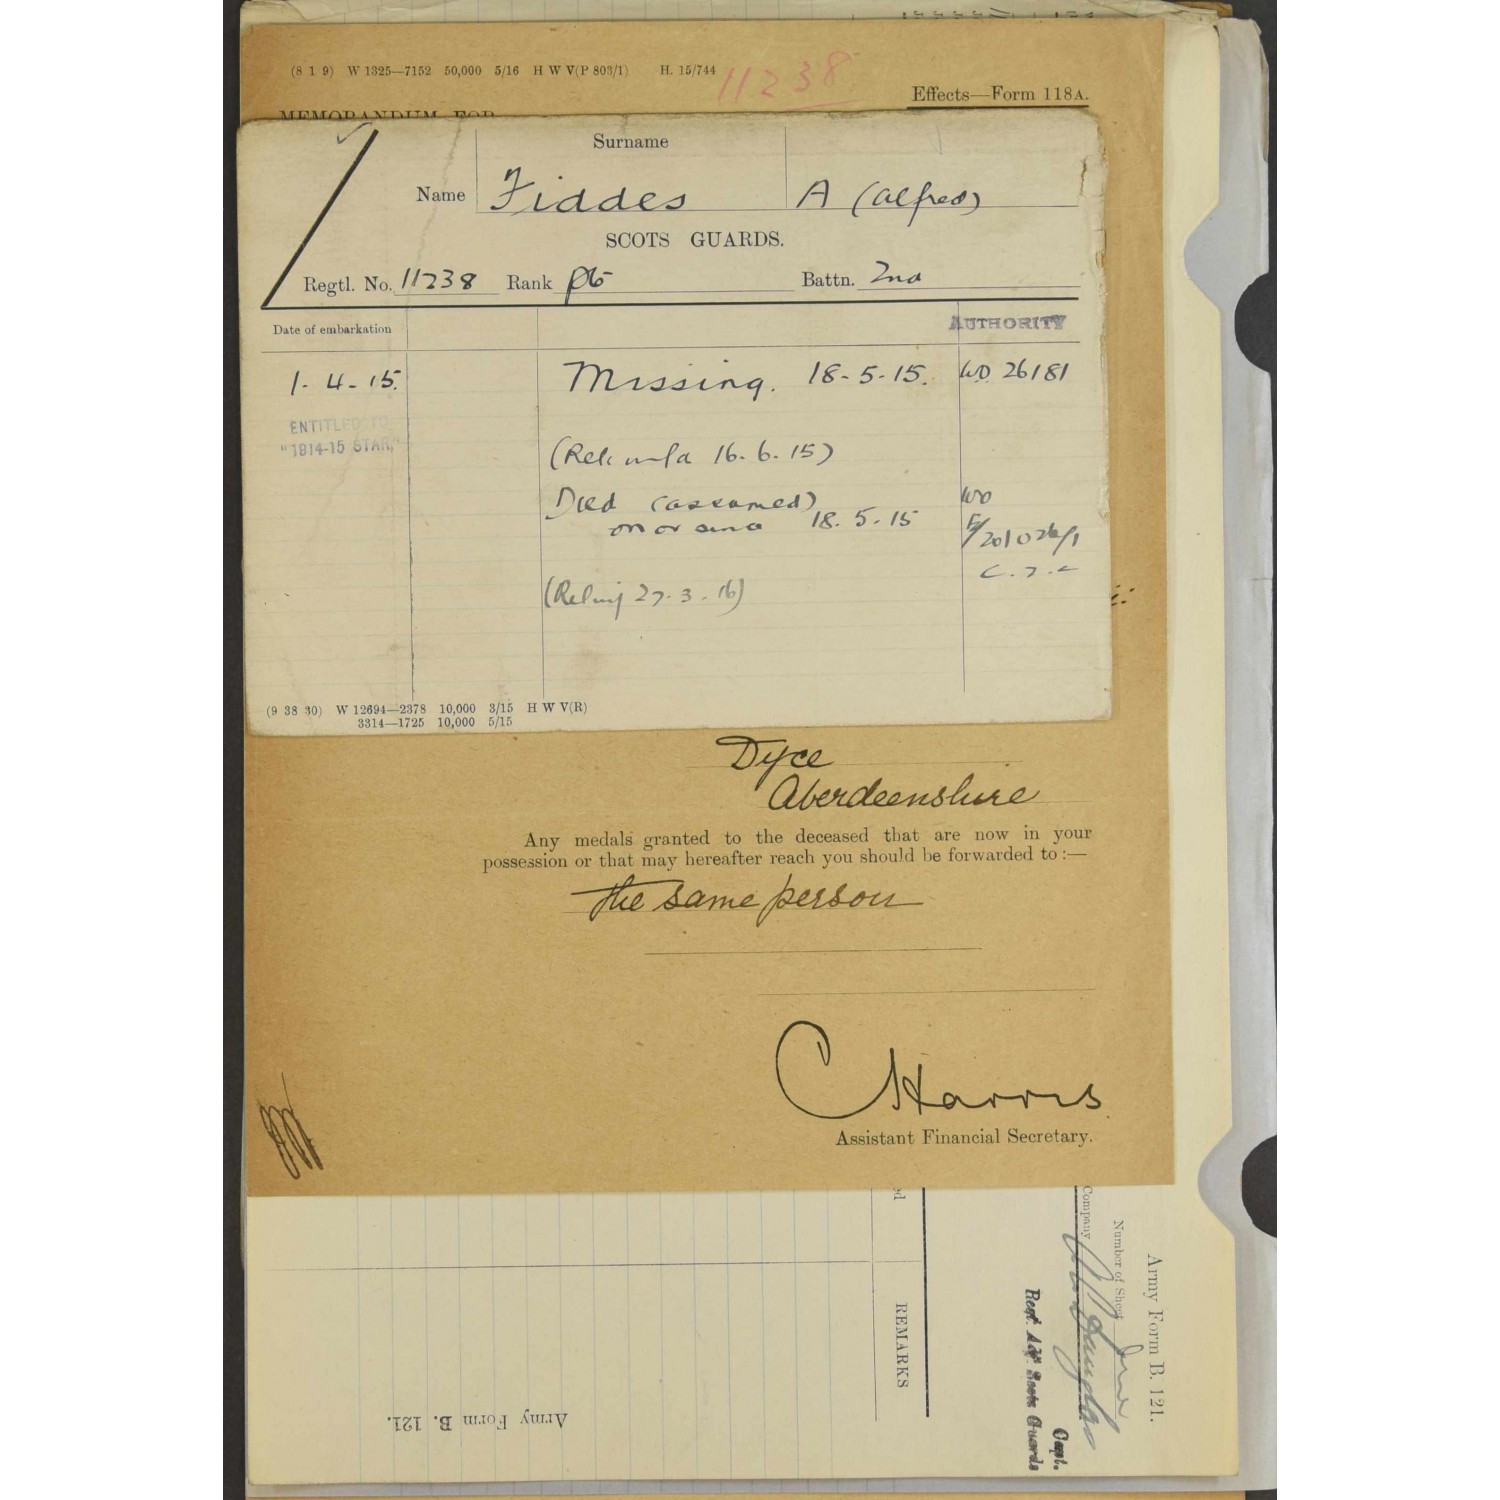 (8 1 9) W 1325—7152 50,000 5/16 H W V(P 803/1) H. 15/744
11238
Effects—Form 118A.
MEMORANDUM FOR
Surname
Name Fiddes A (Alfred)
SCOTS GUARDS.
Regtl. No. 11238 Rank Pte Battn. 2nd
Date of embarkation
AUTHORITY
1-4-15. Missing. 18-5-15. WO 26181
ENTITLED TO
"1914-15 STAR,"
16.6.15)
Died (assumed)
on or since 18.5.15
WO
27.3.16)
(9 38 30) W 12694—2378 10,000 3/15 H W V(R)
3314—1725 10,000 5/15
Dyce
Aberdeenshire
Any medals granted to the deceased that are now in your
possession or that may hereafter reach you should be forwarded to :—
the same person
C Harris
Assistant Financial Secretary.
Army Form B. 121.
Number of Sheet
Company
Capt.
Regt. Adjt. Scots Guards
REMARKS
Army Form B. 121.